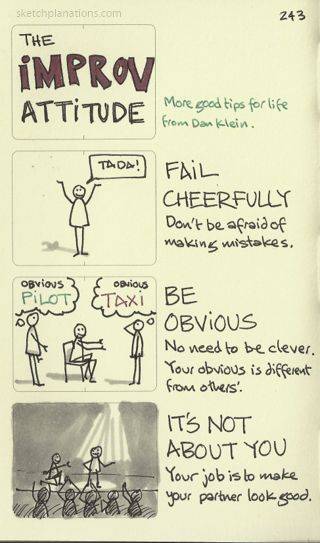 sketchplanations.com
243
THE
IMPROV
ATTITUDE
More good tips for life
from Dan Klein.
TADA!
FAIL
CHEERFULLY
Don't be afraid of
making mistakes.
OBVIOUS
PILOT
OBVIOUS
TAXI
BE
OBVIOUS
No need to be clever.
Your obvious is different
from others'.
IT'S NOT
ABOUT YOU
Your job is to make
your partner look good.